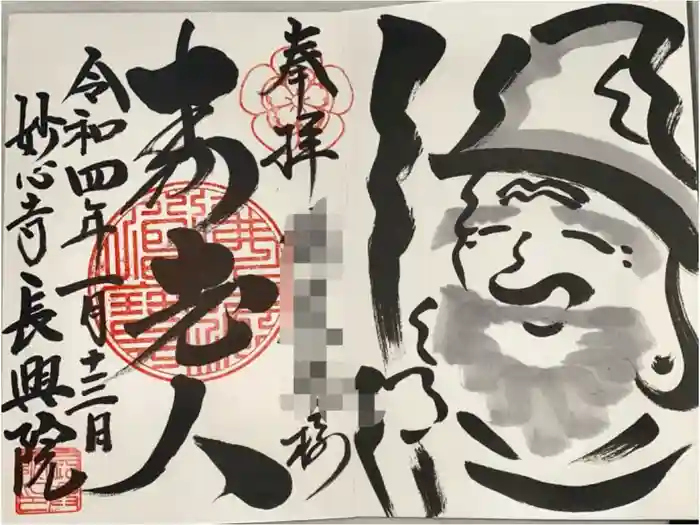 奉拝
寿老人
令和四年一月十三日
妙心寺長興院